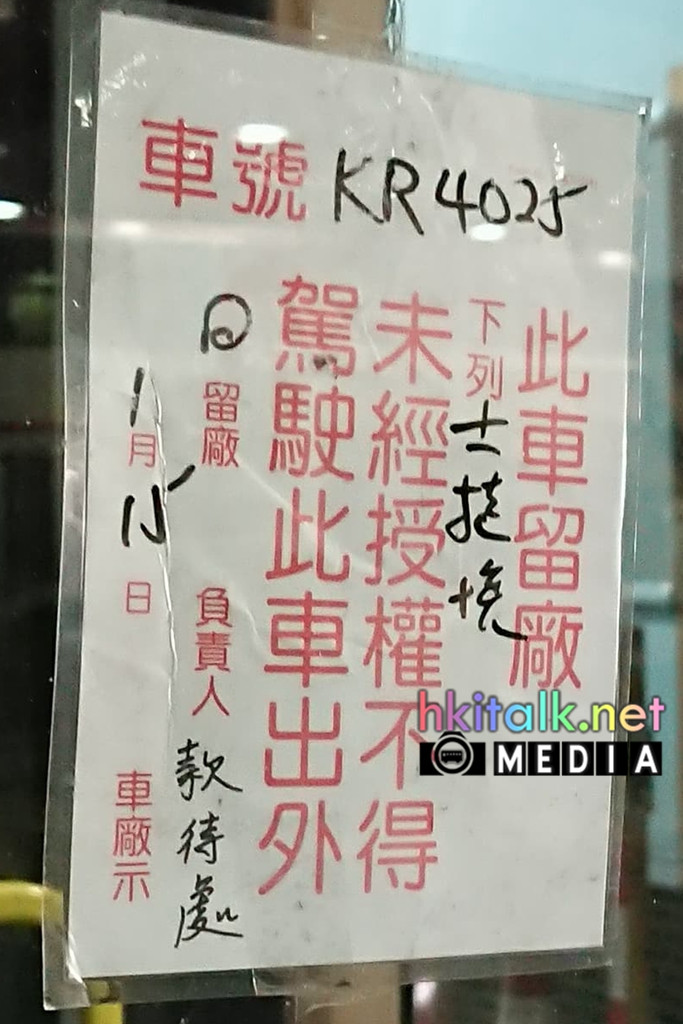 車號 KR4025
此車留廠
下列
未經授權不得
駕駛此車出外
留廠 負責人 款待處
1月15日 車廠示
hkitalk.net
MEDIA